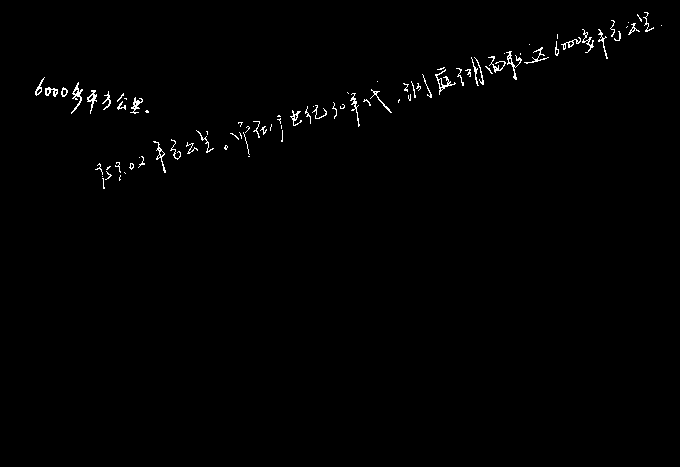 6000多平方公里.
959.02平方公里。而在19世纪30年代,洞庭湖面积达6000多平方公里.